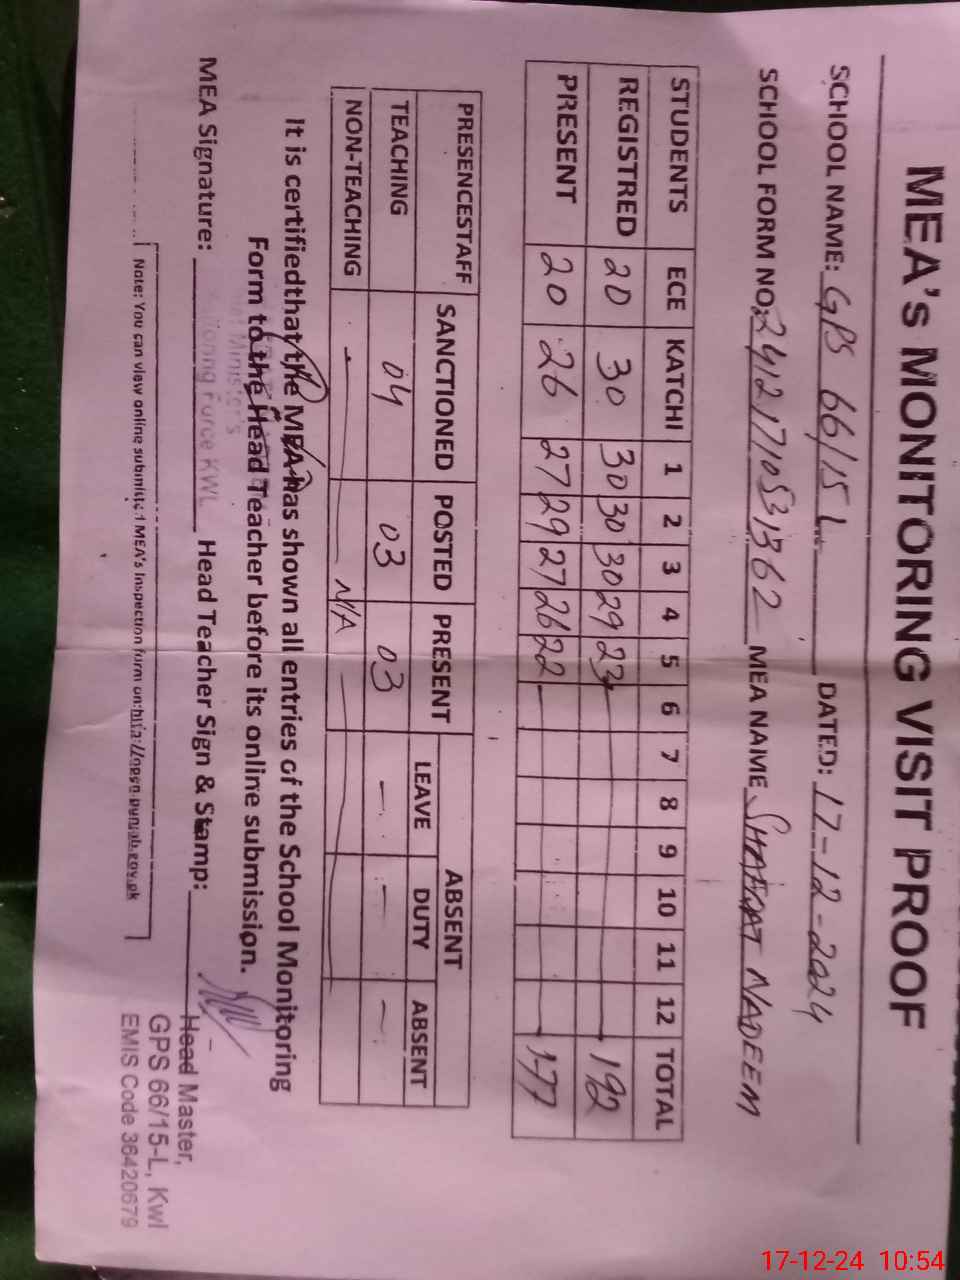 MEA's MONITORING VISIT PROOF
SCHOOL NAME: GPS 66/15 L DATED: 17-12-2024
SCHOOL FORM NO: MEA NAME SHAFQAT NADEEM
STUDENTS ECE KATCHI 1 2 3 4 5 6 7 8 9 10 11 12 TOTAL
REGISTRED 20 30 30 30 30 29 23 192
PRESENT 20 26 27 29 27 26 22 177
PRESENCESTAFF SANCTIONED POSTED PRESENT ABSENT
LEAVE DUTY ABSENT
TEACHING 04 03 03 - - -
NON-TEACHING - N/A
It is certifiedthat the MEA has shown all entries of the School Monitoring
Form to the Head Teacher before its online submission.
Minister's
Force KWL
MEA Signature: Head Teacher Sign & Stamp:
Head Master,
GPS 66/15-L, Kwl
EMIS Code 36420679
Note: You can view online submitted MEA's Inspection form on:http://open.punjab.gov.pk
17-12-24 10:54